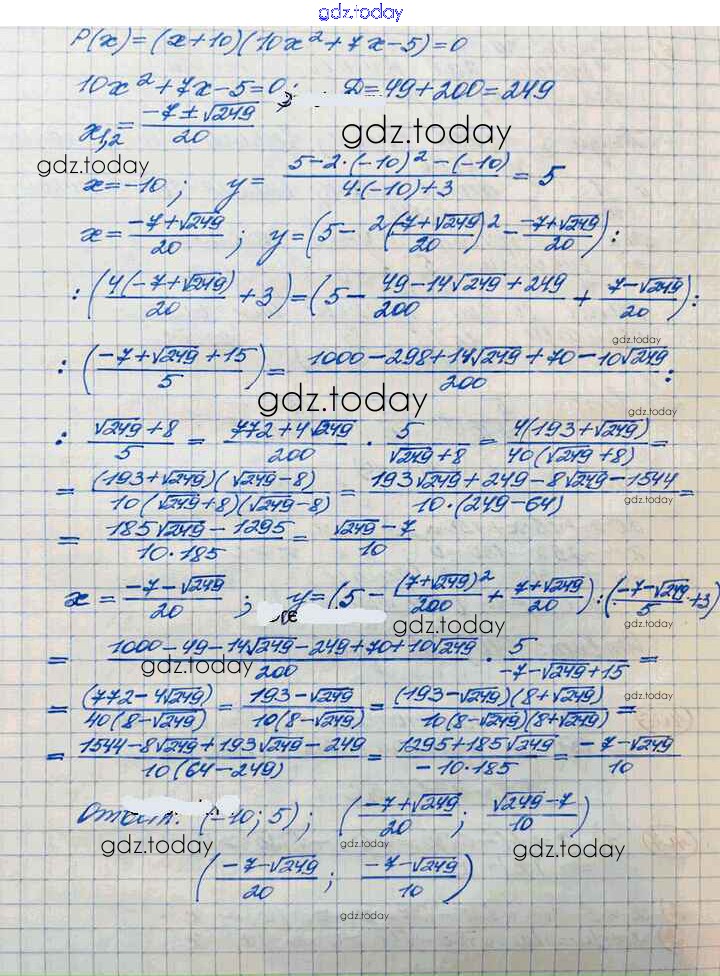 gdz.today
P(x) = (x+10)(10x² + 7x - 5) = 0
10x² + 7x - 5 = 0; D = 49 + 200 = 249
x₁,₂ = (-7 ± √249)/20
gdz.today
gdz.today
x = -10; y = (5 - 2·(-10)² - (-10))/(4·(-10) + 3) = 5
x = (-7 + √249)/20; y = (5 - 2((-7 + √249)/20)² - (-7 + √249)/20) :
: (4(-7 + √249)/20 + 3) = (5 - (49 - 14√249 + 249)/200 + (7 - √249)/20) :
gdz.today
: ((-7 + √249 + 15)/5) = (1000 - 298 + 14√249 + 70 - 10√249)/200 :
gdz.today
gdz.today
: (√249 + 8)/5 = (772 + 4√249)/200 · 5/(√249 + 8) = 4(193 + √249)/40(√249 + 8) =
= (193 + √249)(√249 - 8)/10(√249 + 8)(√249 - 8) = (193√249 + 249 - 8√249 - 1544)/10·(249 - 64) =
gdz.today
= (185√249 - 1295)/10·185 = (√249 - 7)/10
x = (-7 - √249)/20; y = (5 - (7 + √249)²/200 + (7 + √249)/20) : ((-7 - √249)/5 + 3)
gdz.today
gdz.today
= (1000 - 49 - 14√249 - 249 + 70 + 10√249)/200 · 5/(-7 - √249 + 15) =
gdz.today
= (772 - 4√249)/40(8 - √249) = (193 - √249)/10(8 - √249) = (193 - √249)(8 + √249)/10(8 - √249)(8 + √249) =
gdz.today
= (1544 - 8√249 + 193√249 - 249)/10(64 - 249) = (1295 + 185√249)/-10·185 = (-7 - √249)/10
(-10; 5); ((-7 + √249)/20; (√249 - 7)/10)
gdz.today
gdz.today
gdz.today
((-7 - √249)/20; (-7 - √249)/10)
gdz.today